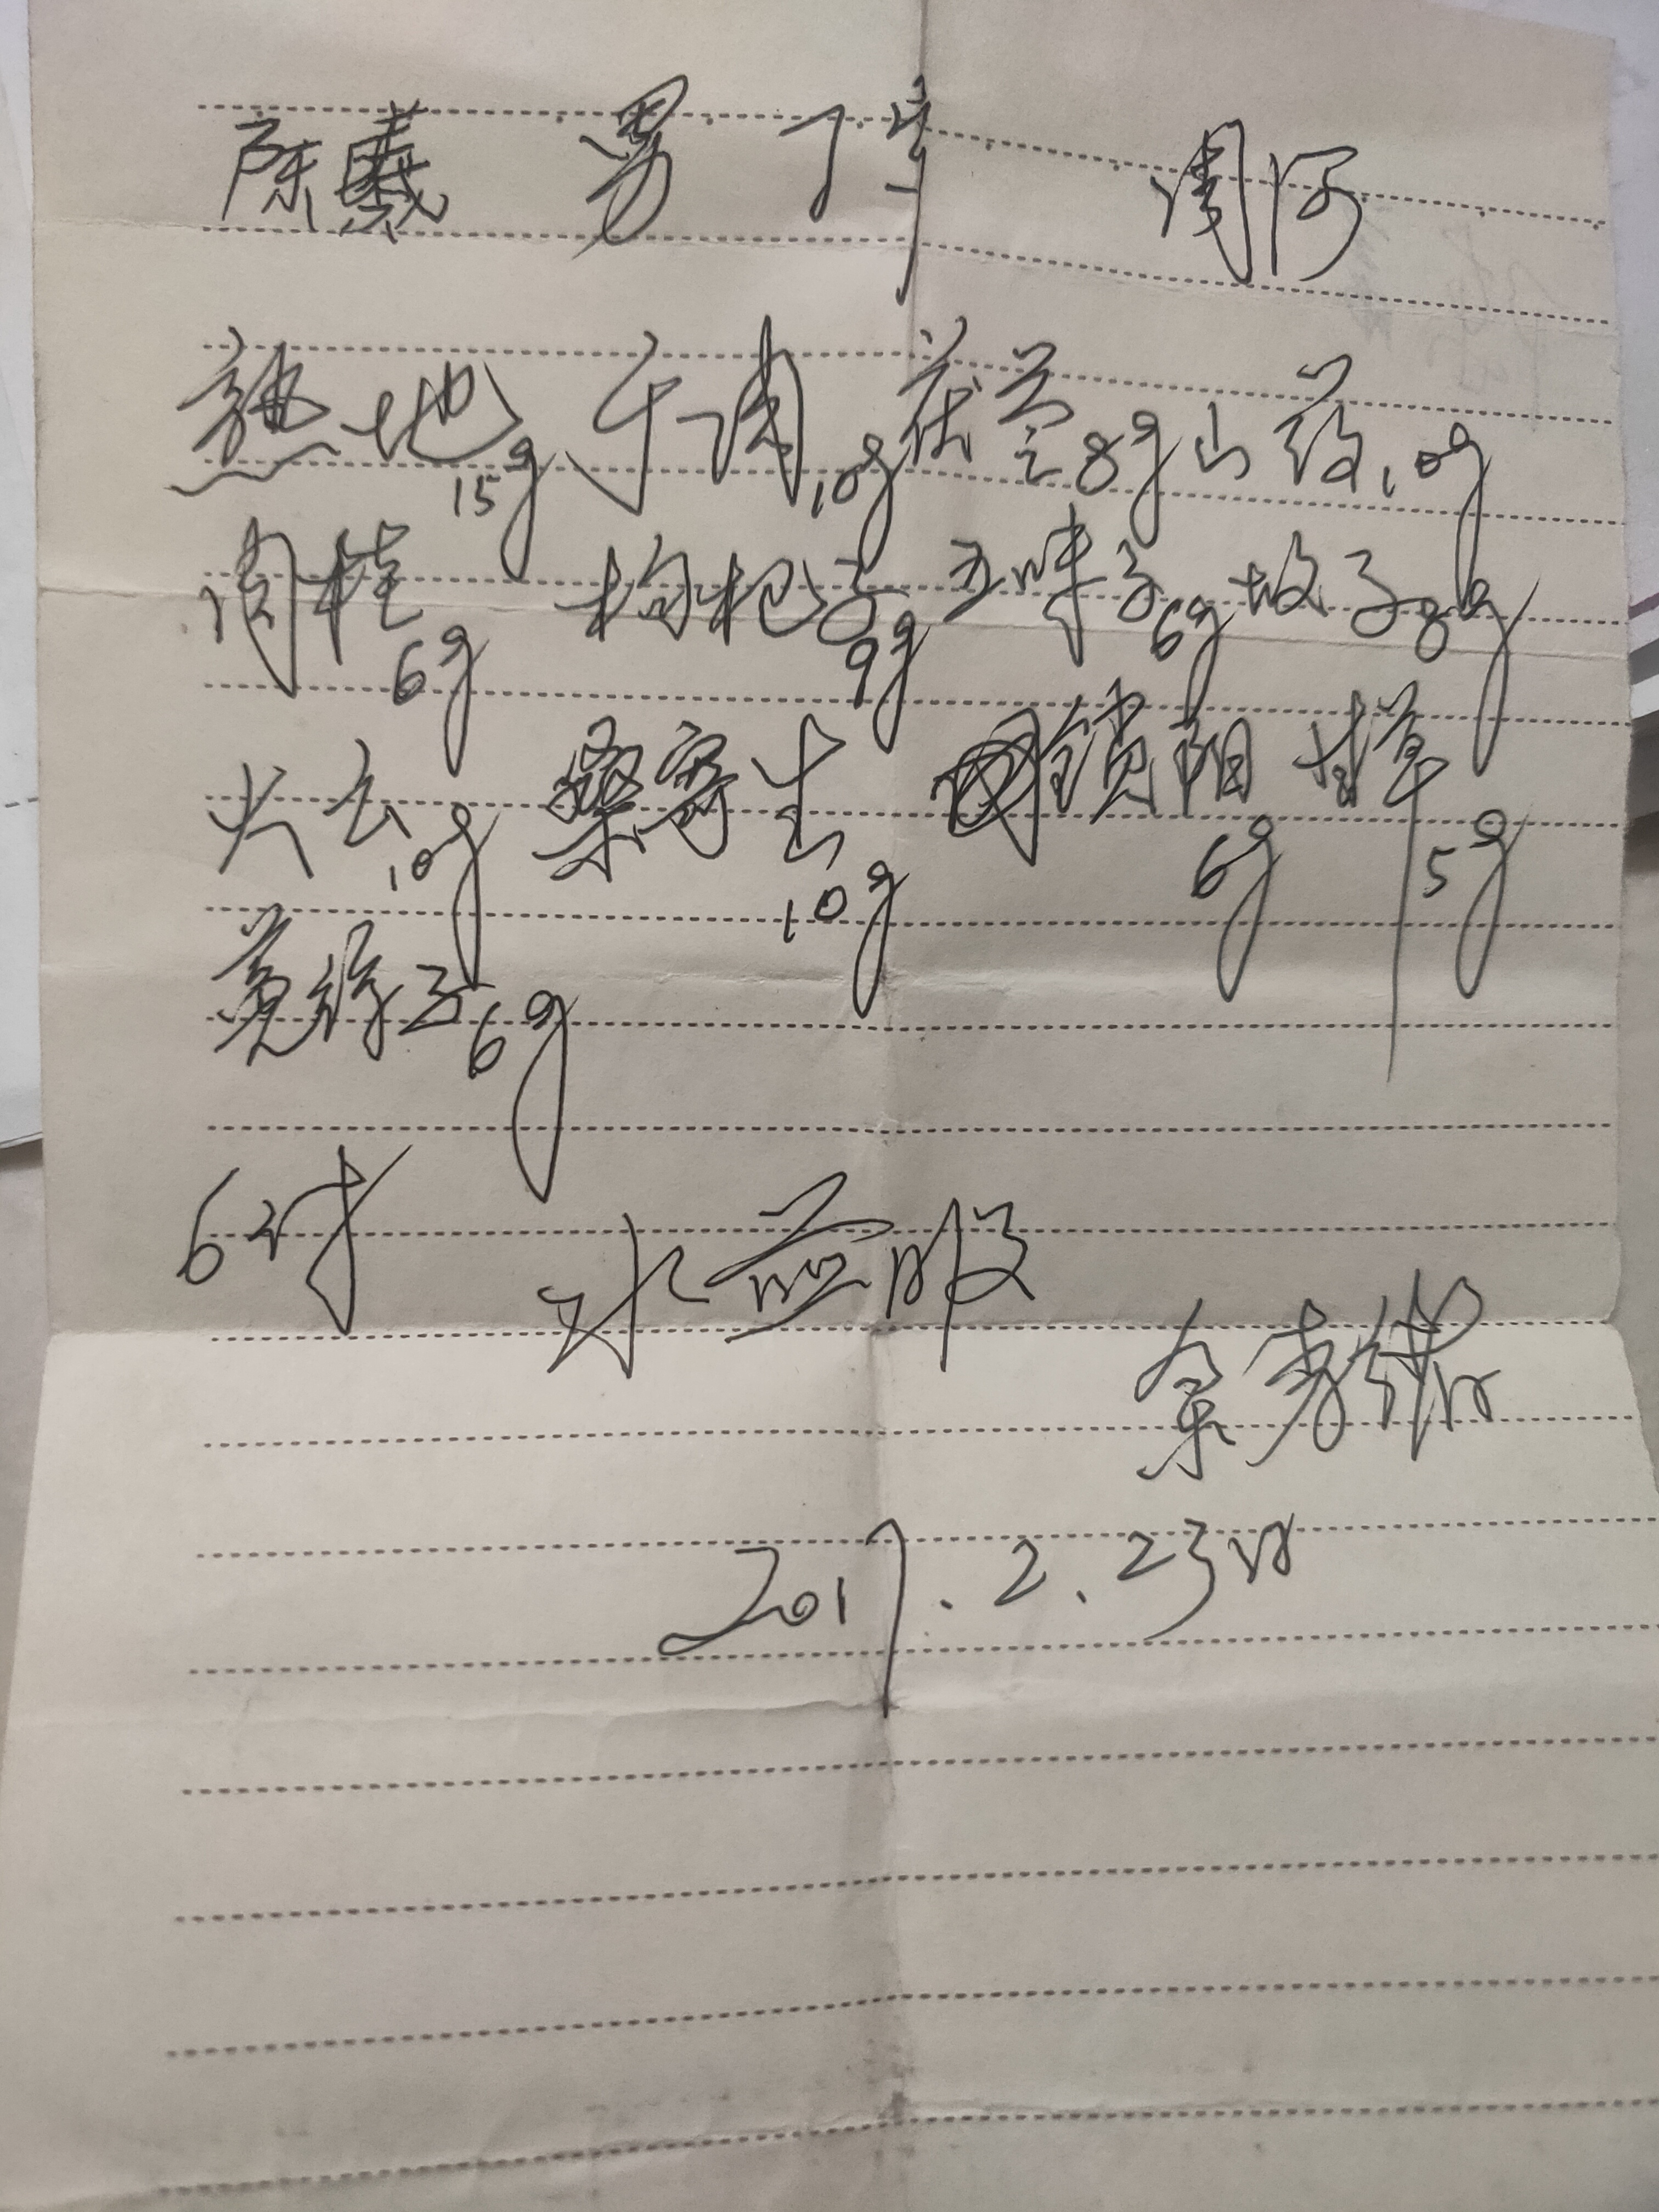 男 7岁 周河
熟地15g 于肉10g 茯苓8g 山药10g
肉桂6g 枸杞子9g 五味子6g 故子8g
大云10g 桑寄生10g 锁阳6g 甘草5g
菟丝子6g
6付 水煎服
2017.2.23日